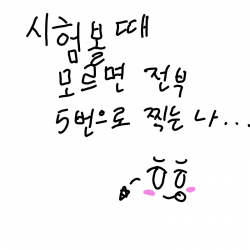 시험볼 때
모르면 전부
5번으로 찍는 나...